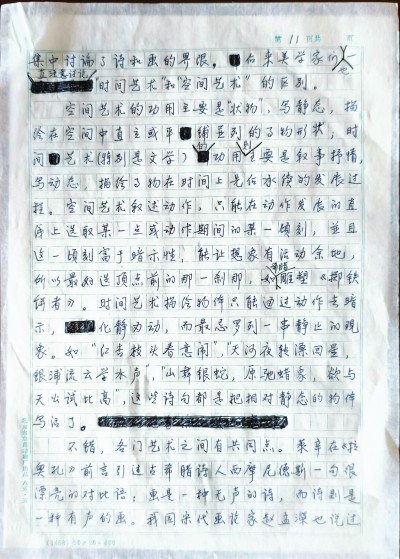 第 11 页共 页
集中讨论了诗和画的界限。后来美学家们
直注意讨论
"时间艺术"和"空间艺术"的区别。
空间艺术的功用主要是"状物",写静态,描
绘在空间中直立或平铺並列的事物形状;时
间艺术(特别是文学)的功用则主要是叙事抒情,
写动态,描绘事物在时间上先后承续的发展过
程。空间艺术叙述动作,只能在动作发展的直
线上选取某一点或动作期间的某一顷刻,並且
这一顷刻富于暗示性,能让想象有活动余地,
所以最好选顶点前的那一刹那,如希腊雕塑《掷铁
饼者》。时间艺术描绘物件只能通过动作去暗
示,化静为动,而最忌罗列一串静止的现
象。如"红杏枝头春意闹","天河夜转漂回星,
银浦流云学水声","山舞银蛇,原驰蜡象,欲与
天公试比高",这些诗句都是把相对静态的物件
写活了。
不错,各门艺术之间有共同点。莱辛在《拉
奥孔》前言引过古希腊诗人西摩尼德斯一句很
漂亮的对比语:画是一种无声的诗,而诗则是
一种有声的画。我国宋代画论家赵孟濚也说过